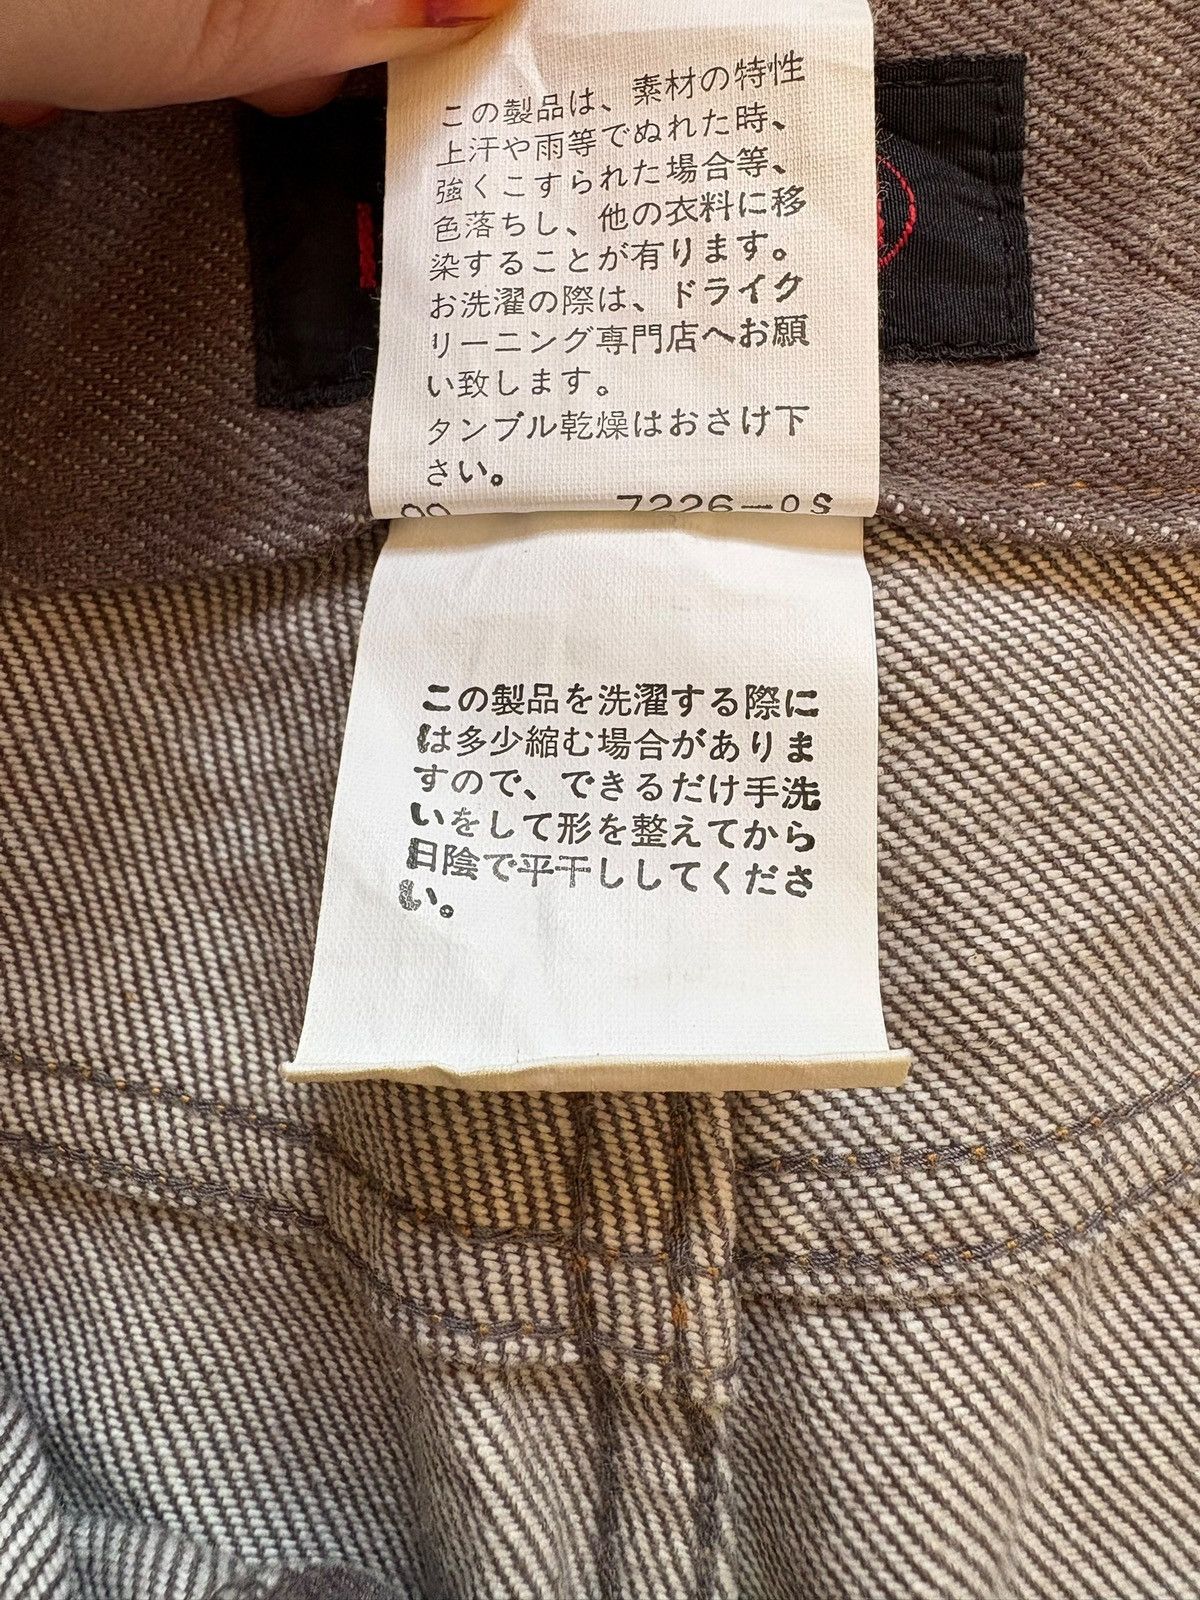 この製品は、素材の特性
上汗や雨等でぬれた時、
強くこすられた場合等、
色落ちし、他の衣料に移
染することが有ります。
お洗濯の際は、ドライク
リーニング専門店へお願
い致します。
タンブル乾燥はおさけ下
さい。
7226-0S
この製品を洗濯する際に
は多少縮む場合がありま
すので、できるだけ手洗
いをして形を整えてから
日陰で平干ししてくださ
い。